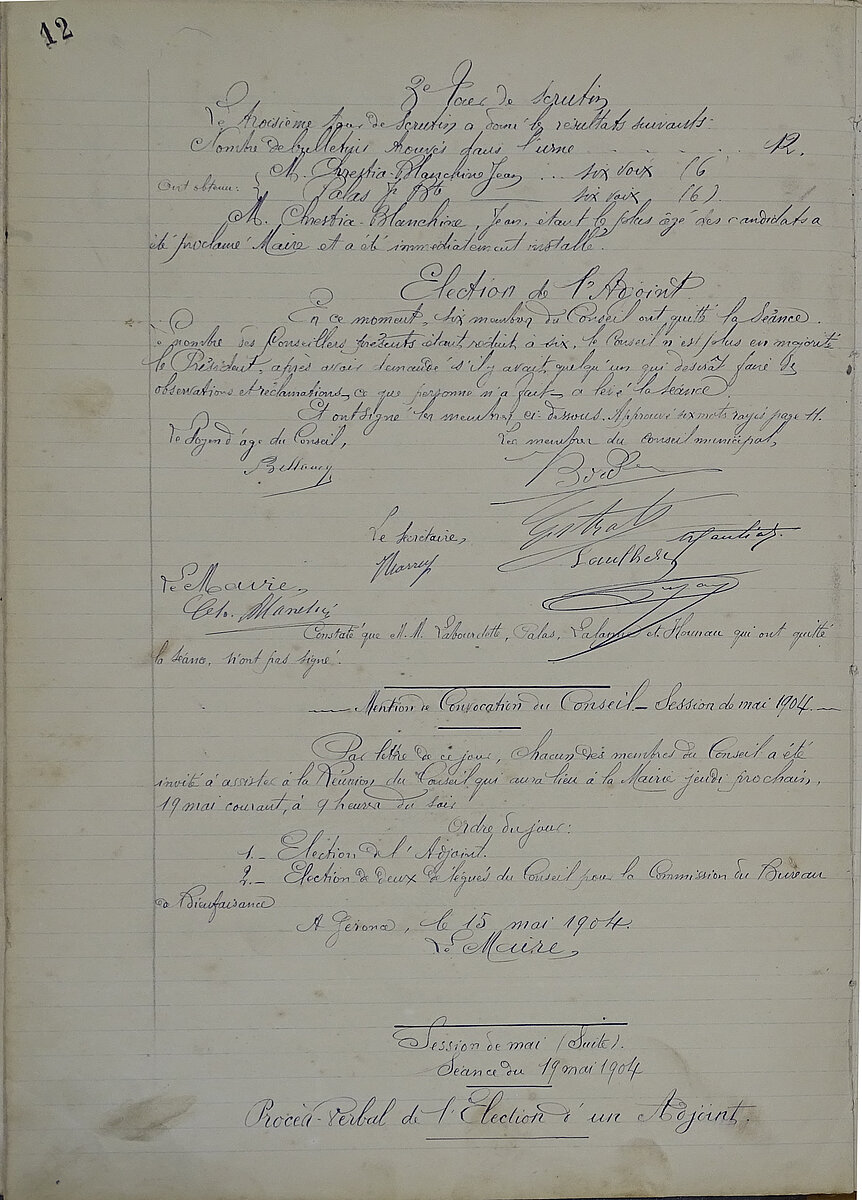 12
3e Tour de scrutin
Le troisième tour de scrutin a donné les résultats suivants:
Nombre de bulletins trouvés dans l'urne . . . . . . 12.
M. Chrestia-Blanchine Jean ... six voix (6
Ont obtenu: { Palas Jn Bte ——— six voix (6).
M. Chrestia-Blanchine, Jean, étant le plus âgé des candidats a
été proclamé Maire et a été immédiatement installé.
Election de l'Adjoint
En ce moment, six membres du Conseil ont quitté la séance.
Le nombre des Conseillers présents étant réduit à six, le Conseil n'est plus en majorité
le Président, après avoir demandé s'il y avait quelqu'un qui désirât faire des
observations et réclamations, ce que personne n'a fait, a levé la séance.
Et ont signé les membres ci-dessous. Approuvé six mots rayés page 11.
Le Doyen d'âge du Conseil,
Les membres du conseil municipal,
Le secrétaire,
Le Maire,
Constaté que M.M. Labourdette, Palas, Lalanne et Hourau qui ont quitté
la séance, n'ont pas signé.
Mention de Convocation du Conseil — Session de mai 1904.—
Par lettre de ce jour, chacun des membres du Conseil a été
invité à assister à la Réunion du Conseil qui aura lieu à la Mairie jeudi prochain,
19 mai courant, à 9 heures du soir
Ordre du jour:
1.— Election de l'Adjoint.
2.— Election de deux délégués du Conseil pour la Commission du Bureau
de Bienfaisance
A Geronce, le 15 mai 1904.
Le Maire,
Session de mai (Suite).
Séance du 19 mai 1904
Procès-Verbal de l'Election d'un Adjoint.